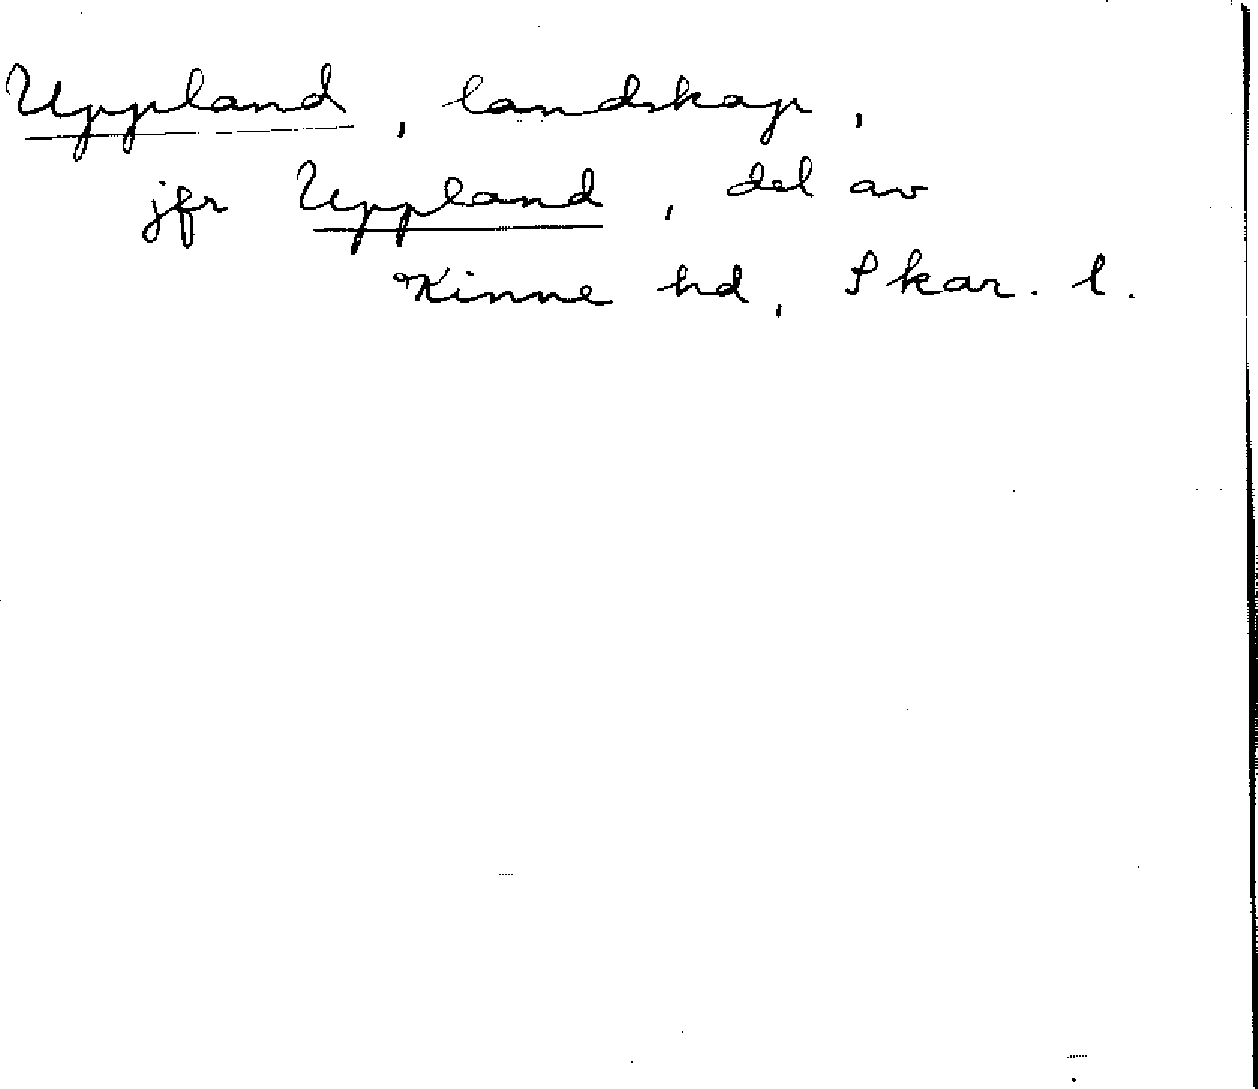 Uppland, landskap,
jfr Uppland, del av
Kinne hd, Skar. l.